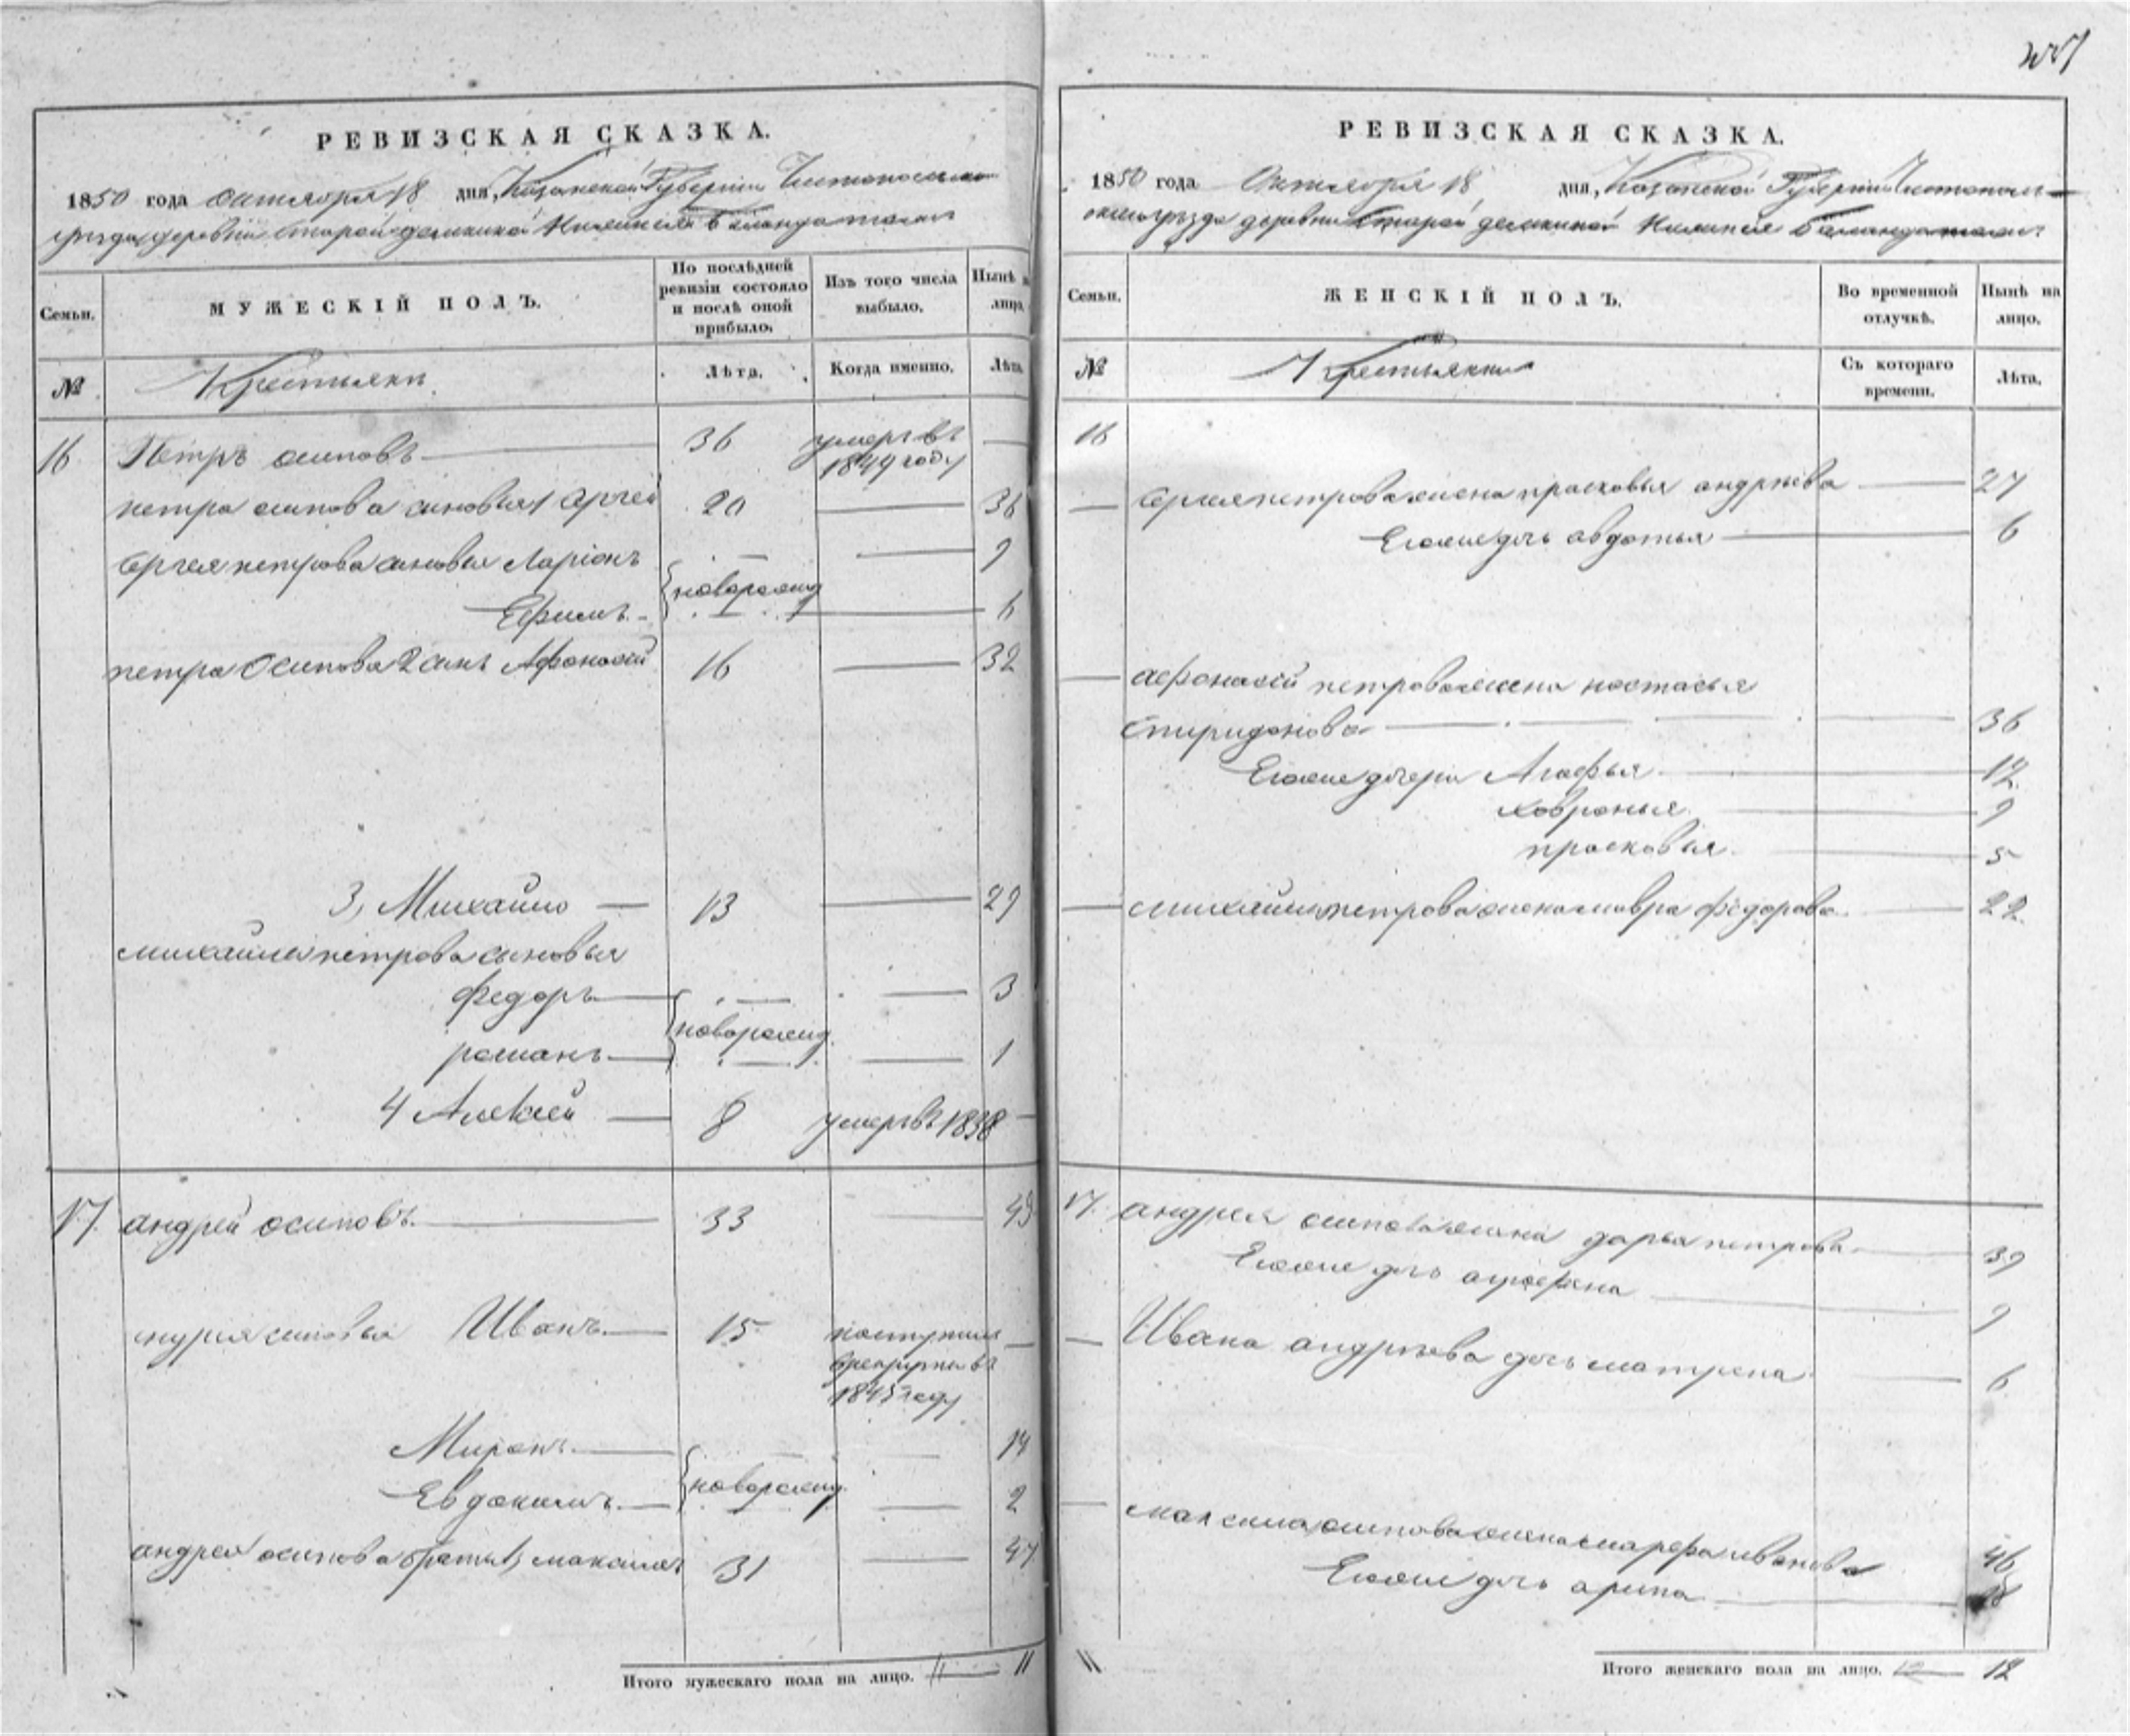 РЕВИЗСКАЯ СКАЗКА.
1850 года октября 18 дня, Казанской Губернии Чистопольско
уезда деревни Старой
Семьи. МУЖЕСКІЙ ПОЛЪ. По послѣдней ревизіи состояло и послѣ оной прибыло. Изъ того числа выбыло. Нынѣ на лицо.
№ Крестьяни Лѣта. Когда именно. Лѣта
16 Петръ осиповъ 36 умеръ въ 1849 году
петра осипова сыновья 1 Сергей 20 36
Сергея петрова сыновья Ларіонъ 9
новорожд
Ефимъ 6
петра Осипова 2 сынъ Афонасій 16 32
3, Михайло 13 29
михайла петрова сыновья
федоръ 3
новорожд.
романъ 1
4 Алексей 8 умеръ въ 1838
17. андрей осиповъ. 33 49
андрея сыновья Иванъ. 15 поступил
в рекруты въ
1845 году
Миронъ. 14
новорожд.
Евдокимъ. 2
андрея осипова братья 1, максимъ 31 47
Итого мужескаго пола на лицо. 11 11
РЕВИЗСКАЯ СКАЗКА.
1850 года Октября 18 дня, Казанской Губернии Чистополь
ского уезда деревни Старой
Семьи. ЖЕНСКІЙ ПОЛЪ. Во временной отлучкѣ. Нынѣ на лицо.
№ Крестьянки Съ котораго времени. Лѣта.
16
Сергея петрова жена прасковья андреева 27
Егоже дочь авдотья 6
афонасій петрова жена настасья
Спиридонова 36
Егоже дочери Агафья 12
ховронья 9
прасковья 5
михайлы петрова жена мавра федорова 22
17. андрея осипова жена дарья петрова 39
Егоже дочь 9
Ивана андреева дочь матрена 6
максима осипова жена марфа иванова 46
Егоже дочь арина 18
Итого женскаго пола на лицо. 12 12